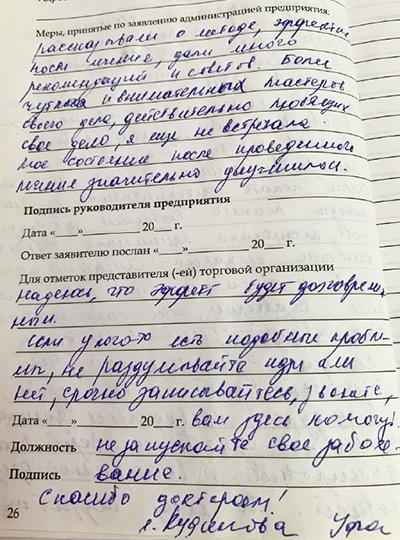 Меры, принятые по заявлению администрацией предприятия:
рассказывали о методе, эффектив
ности лечения, дали много
рекомендаций и советов. Более
чутких и внимательных мастеров
своего дела, действительно любящих
свое дело, я еще не встречала.
Мое состояние после проведенного
лечения значительно улучшилось.
Подпись руководителя предприятия
Дата «___»__________ 20___ г.
Ответ заявителю послан «___»__________ 20___ г.
Для отметок представителя (-ей) торговой организации
Надеюсь, что эффект будет долговремен
ным.
Если у кого-то есть подобные пробле-
мы, не раздумывайте идти или
нет, срочно записывайтесь, звоните,
Дата «___»__________ 20___ г. вам здесь помогут.
Должность не запускайте свое заболе-
Подпись вание.
Спасибо докторам!
г. Уфа
26